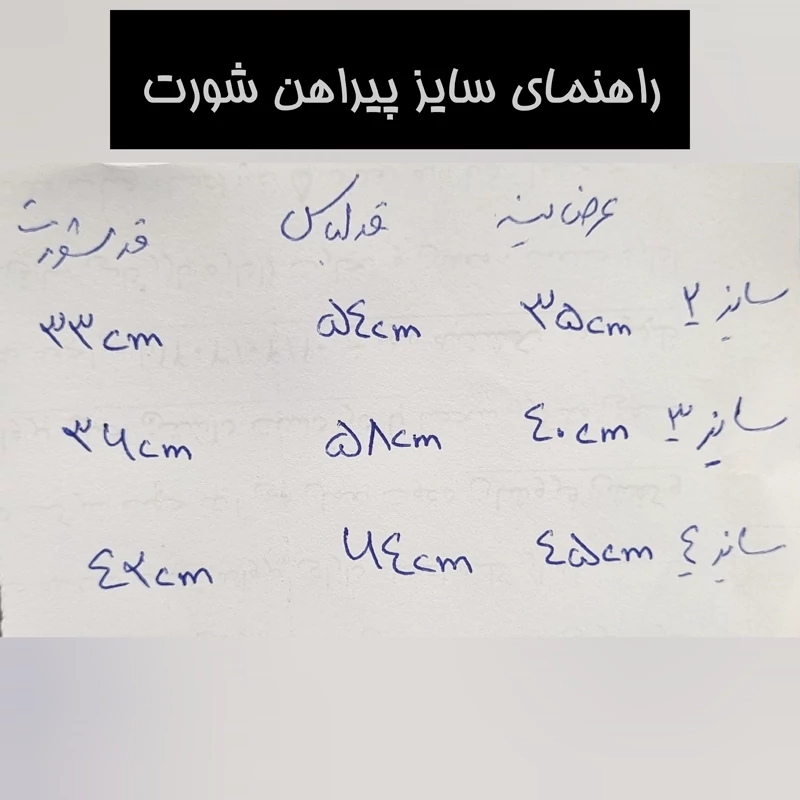 راهنمای سایز پیراهن شورت
عرض سینه قد لباس قد شورت
سایز ۲ ۳۵cm ۵٤cm ۳۳cm
سایز ۳ ٤۰cm ۵۸cm ۳۶cm
سایز ٤ ٤۵cm ۶٤cm ٤۲cm